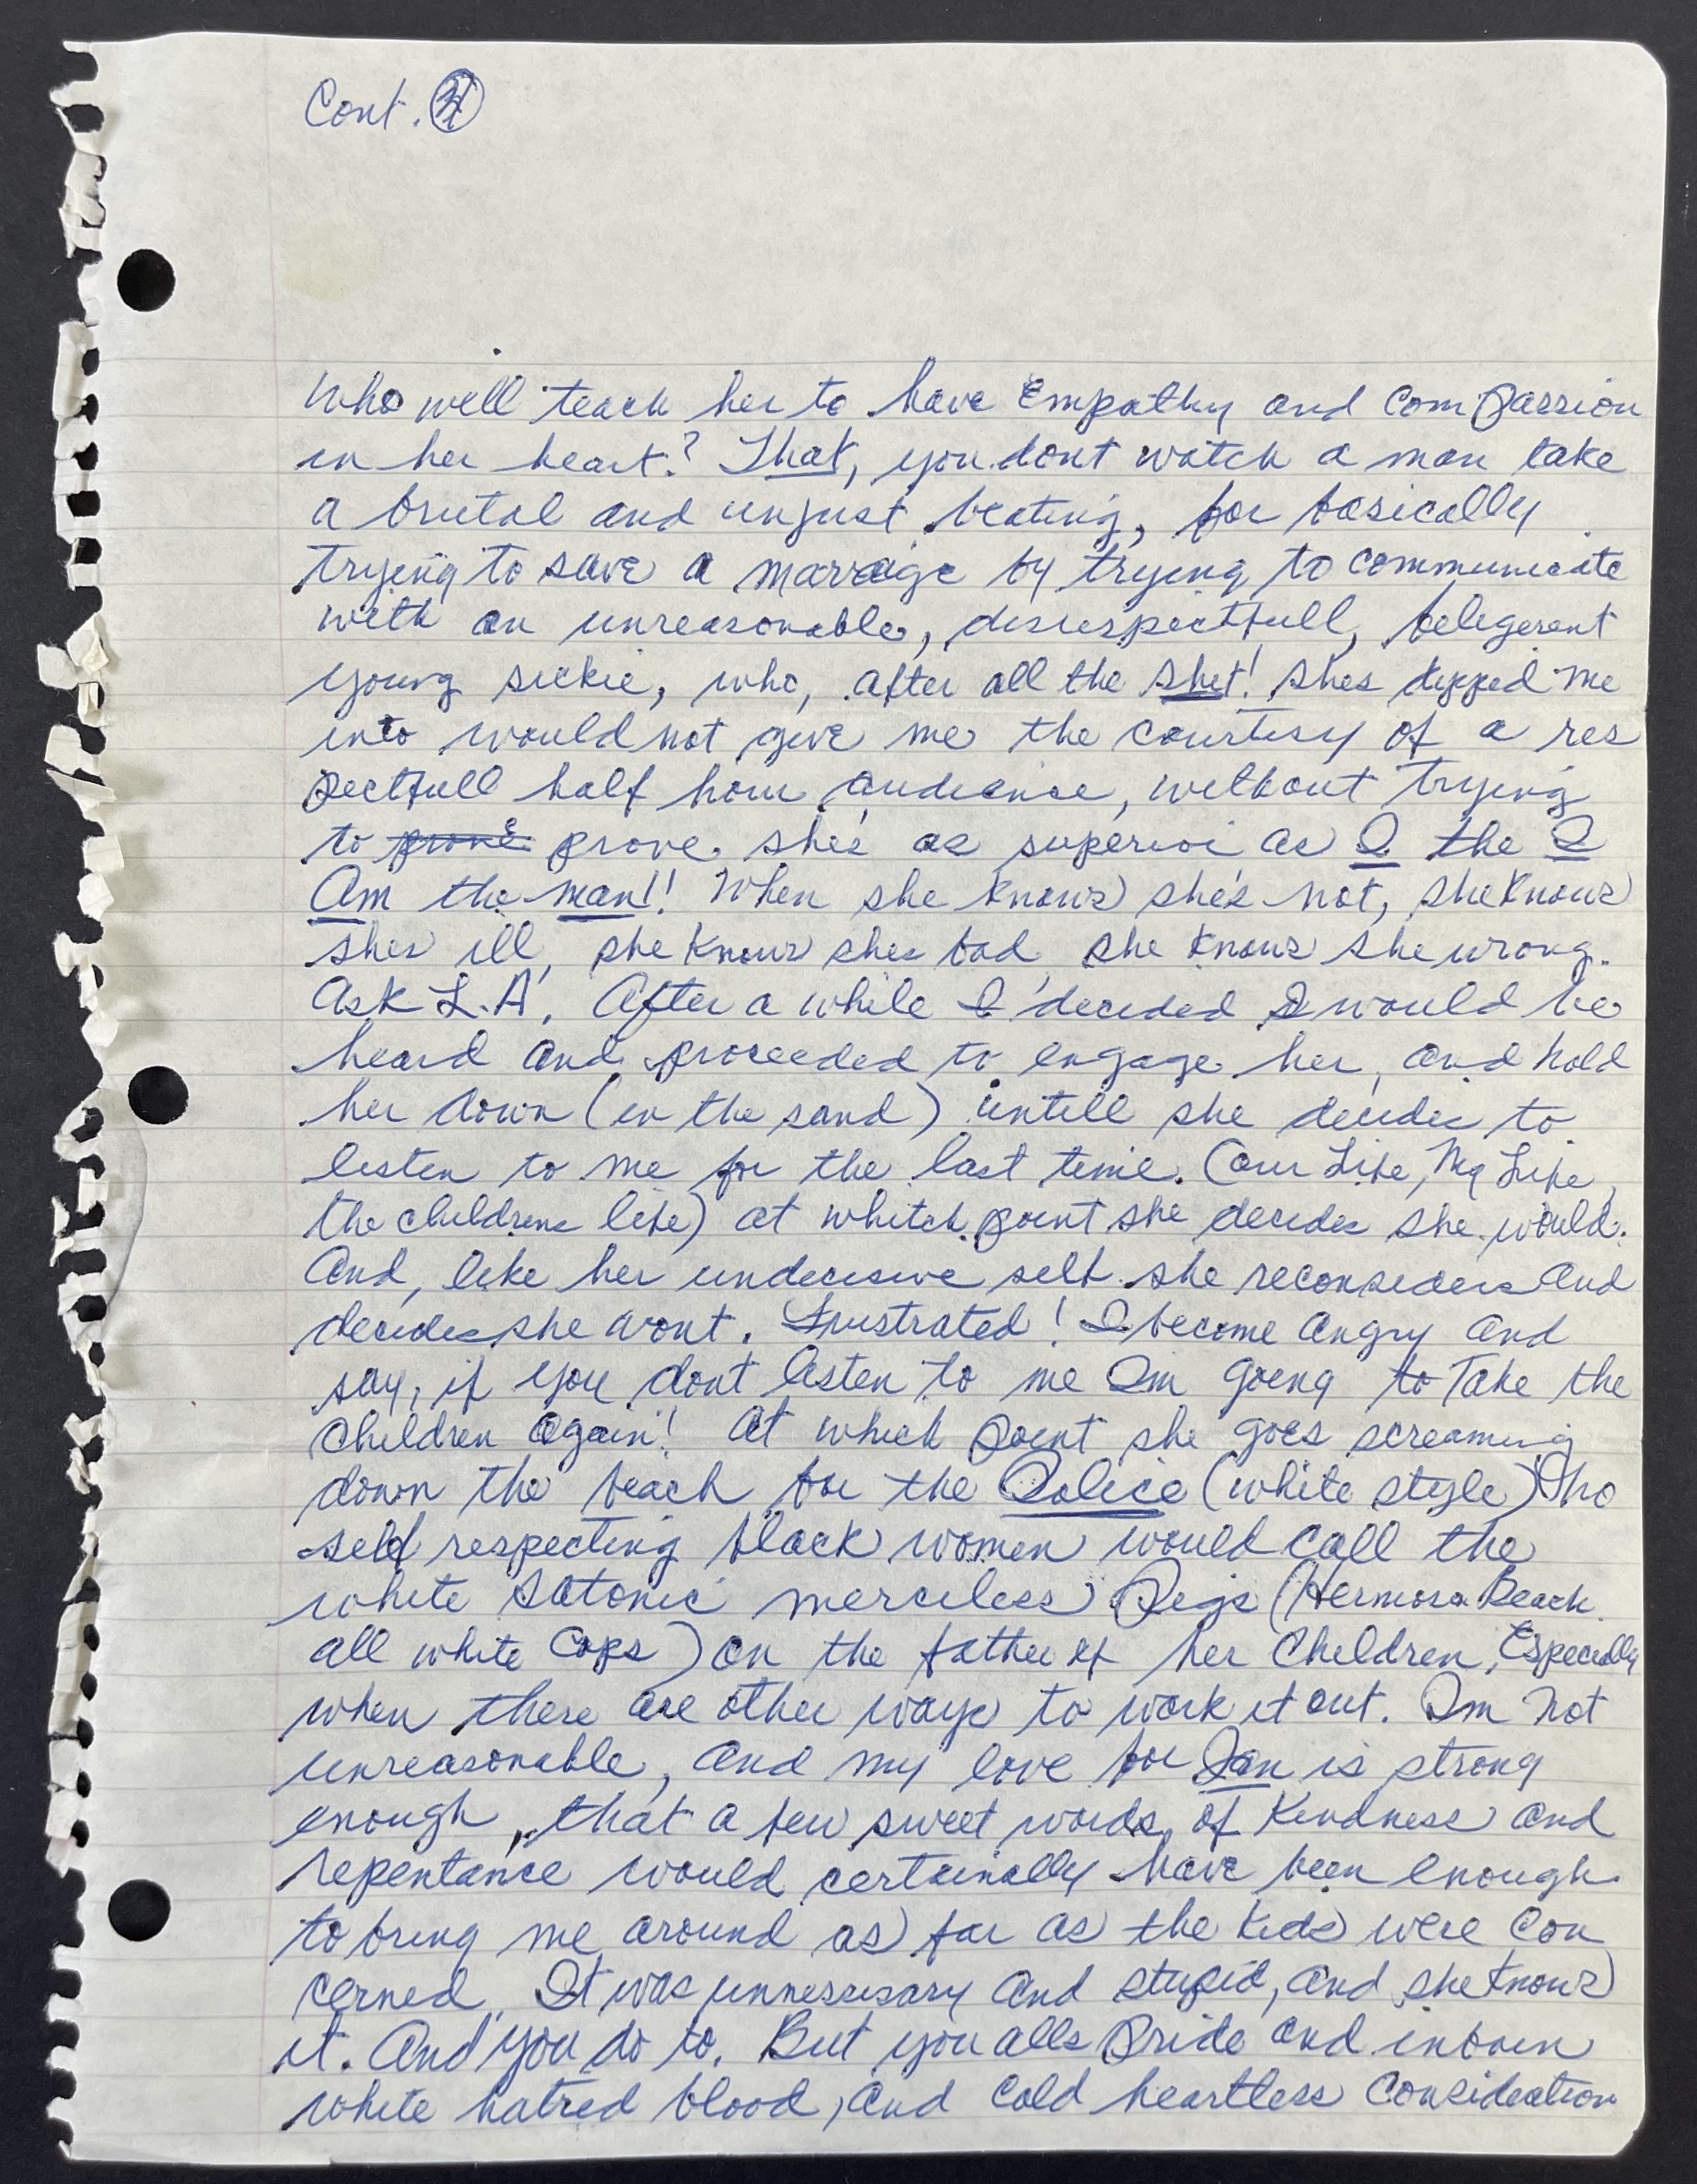 Cont.
Who will teach her to have Empathy and Compassion
in her heart? That, you dont watch a man take
a brutal and unjust beating, for basically
trying to save a marraige by trying to communicate
with an unreasonable, disrespectfull, beligerent
young sickie, who, after all the shit! shes dipped me
into would not give me the courtisy of a res
pectfull half hour audience, without trying
to prove prove she's as superior as I the I
Am the man!! When she knows she's not, she knows
shes ill, she knows shes bad, she knows she wrong.
Ask L.A. After a while I decided I would be
heard and proceeded to engage her, and hold
her down (in the sand) untill she decides to
listen to me for the last time. (Our Life, My Life,
the childrens life) at whitch point she decides she would.
And, like her undecisive self she reconsiders and
decides she wont. Frustrated! I become Angry and
say, if you dont listen to me Im going to Take the
Children again! At which point she goes screaming
down the beach for the Police (white style) No
self respecting black women would call the
white Satonic merciless Pigs (Hermosa Beach
all white Cops) on the father of her Children, Especially
when there are other ways to work it out. Im not
unreasonable, and my love for Jan is strong
enough, that a few sweet words of Kindness and
repentance would certainally have been enough
to bring me around as far as the kids were Con
cerned. It was unnessisary and stupid, and she knows
it. And you do to. But you alls Pride and inborn
white hatred blood, and Cold heartless Consideation